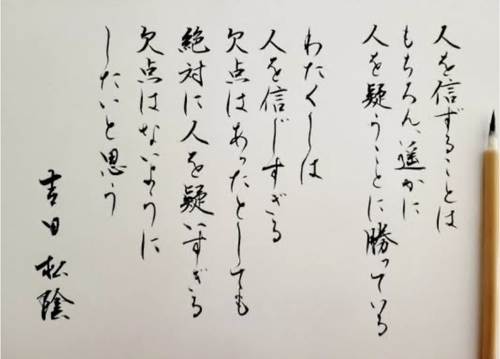 人を信ずることは
もちろん、遥かに
人を疑うことに勝っている
わたくしは
人を信じすぎる
欠点はあったとしても
絶対に人を疑いすぎる
欠点はないように
したいと思う
吉田松陰